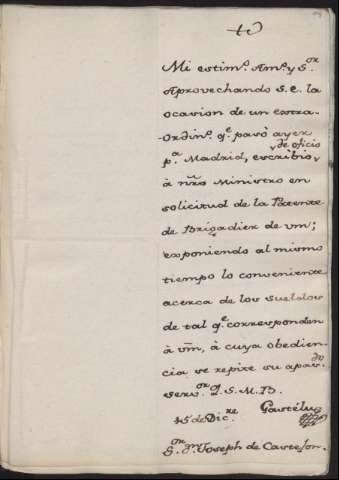 Mi estim.º Am.º y S.or
Aprovechando S.E. la
ocasion de un extra-
ordin.º q.e pasó ayer
p.a Madrid, escribio de oficio
à nro Ministro en
solicitud de la Patente
de Brigadier de vm;
exponiendo al mismo
tiempo lo conveniente
acerca de los sueldos
de tal q.e corresponden
à vm, à cuya obedien-
cia se repite su apas.do
serv.or Q.S.M.B.
15 de Dic.re Gastélu
S.or Dn Joseph de Castejon.